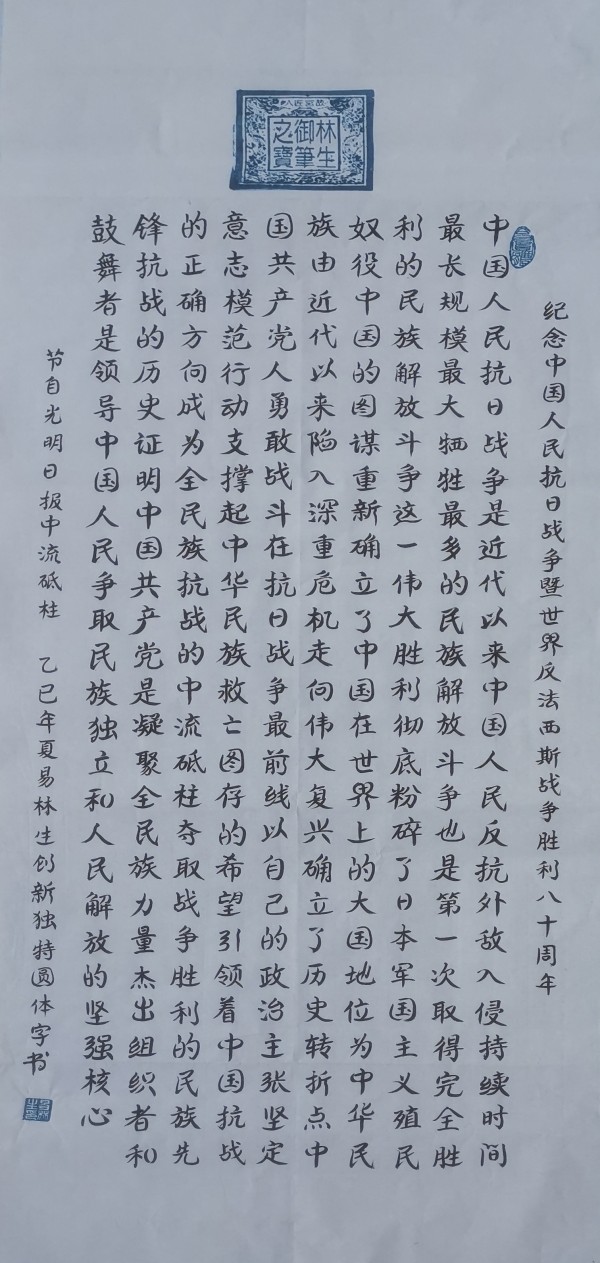 林生
御筆
之寶
纪念中国人民抗日战争暨世界反法西斯战争胜利八十周年
中国人民抗日战争是近代以来中国人民反抗外敌入侵持续时间
最长规模最大牺牲最多的民族解放斗争也是第一次取得完全胜
利的民族解放斗争这一伟大胜利彻底粉碎了日本军国主义殖民
奴役中国的图谋重新确立了中国在世界上的大国地位为中华民
族由近代以来陷入深重危机走向伟大复兴确立了历史转折点中
国共产党人勇敢战斗在抗日战争最前线以自己的政治主张坚定
意志模范行动支撑起中华民族救亡图存的希望引领着中国抗战
的正确方向成为全民族抗战的中流砥柱夺取战争胜利的民族先
锋抗战的历史证明中国共产党是凝聚全民族力量杰出组织者和
鼓舞者是领导中国人民争取民族独立和人民解放的坚强核心
节自光明日报中流砥柱 乙巳年夏易林生创新独特圆体字书